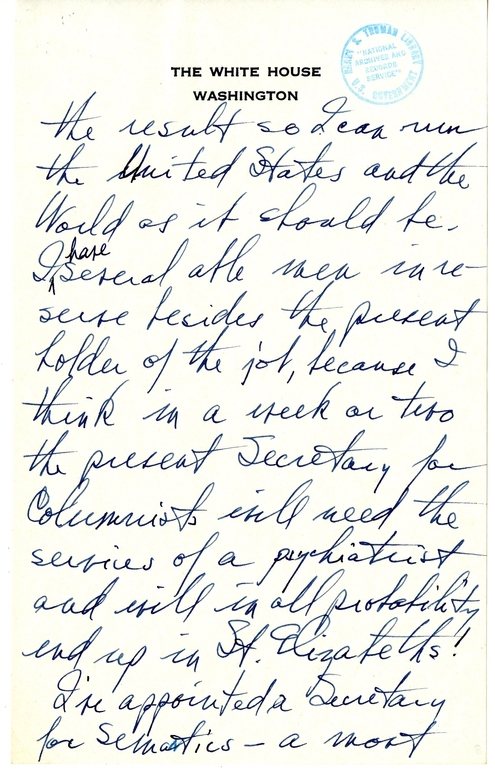 THE WHITE HOUSE
WASHINGTON
HARRY S. TRUMAN LIBRARY
"NATIONAL
ARCHIVES AND
RECORDS
SERVICE"
U.S. GOVERNMENT
the result so I can run
the United States and the
World as it should be.
I have several able men in re-
serve besides the present
holder of the job, because I
think in a week or two
the present Secretary for
Columnists will need the
services of a psychiatrist
and will in all probability
end up in St. Elizabeths!
I've appointed a Secretary
for Semantics – a most